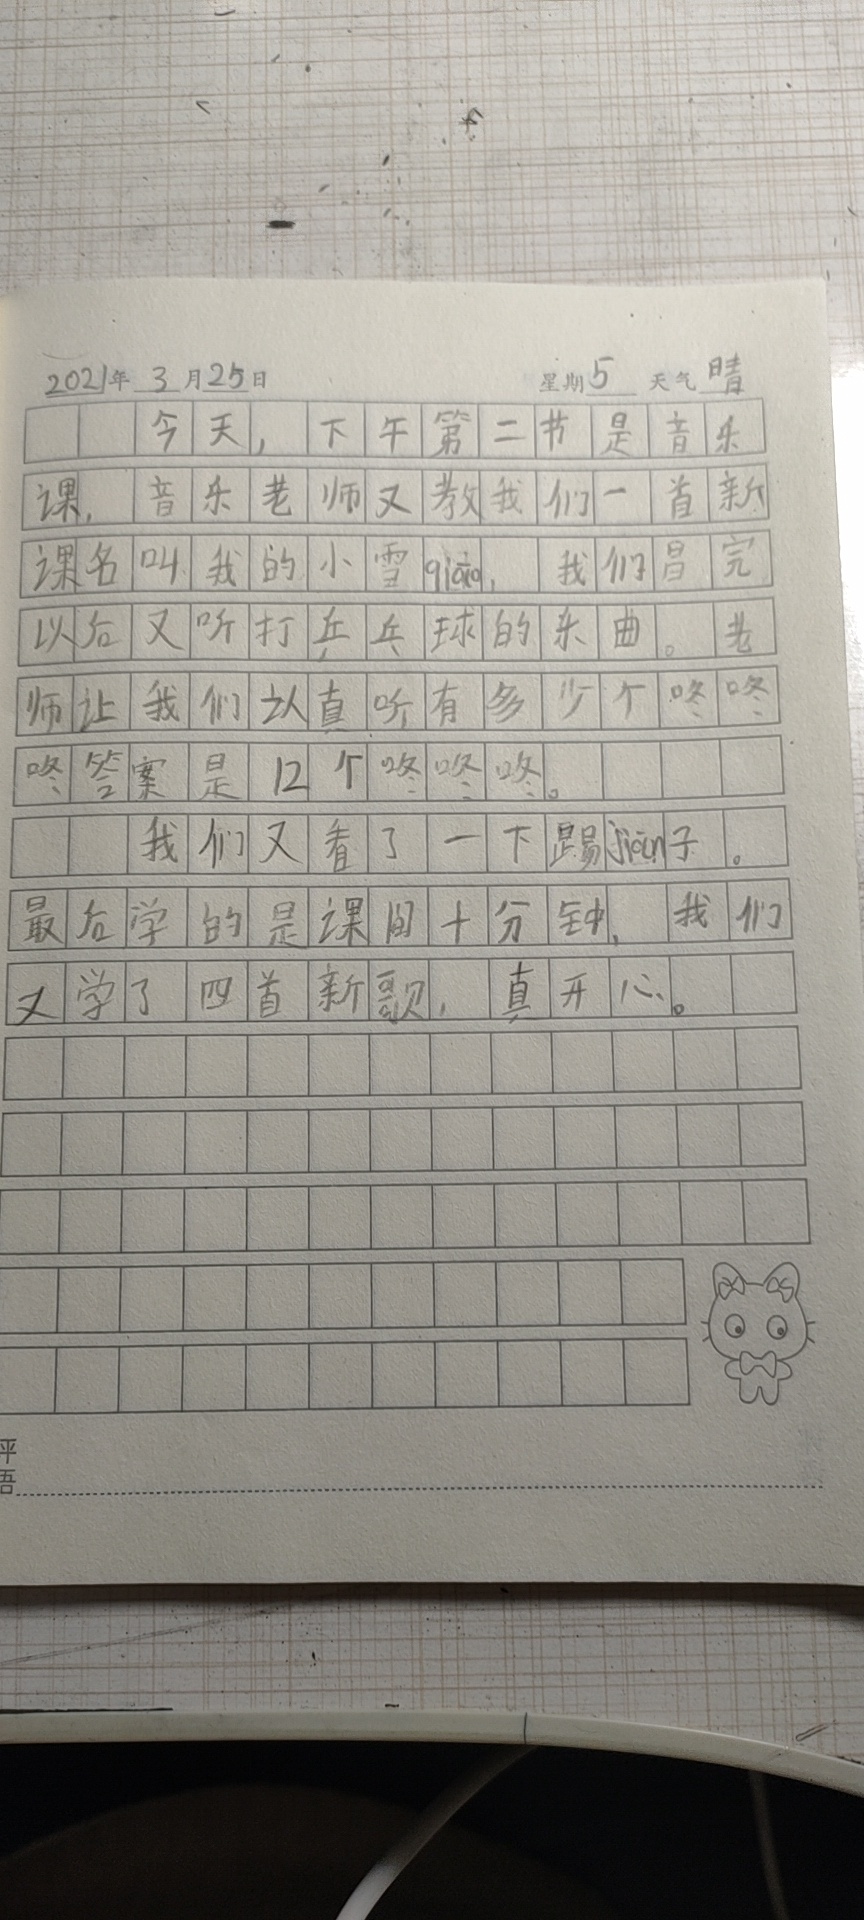 2021年 3 月25日 星期5 天气晴
今天，下午第二节是音乐
课，音乐老师又教我们一首新
课名叫我的小雪qiāo，我们昌完
以后又听打乒乓球的乐曲。老
师让我们认真听有多少个咚咚
咚答案是12个咚咚咚。
我们又看了一下踢jiàn子。
最后学的是课间十分钟，我们
又学了四首新歌，真开心。
评
语